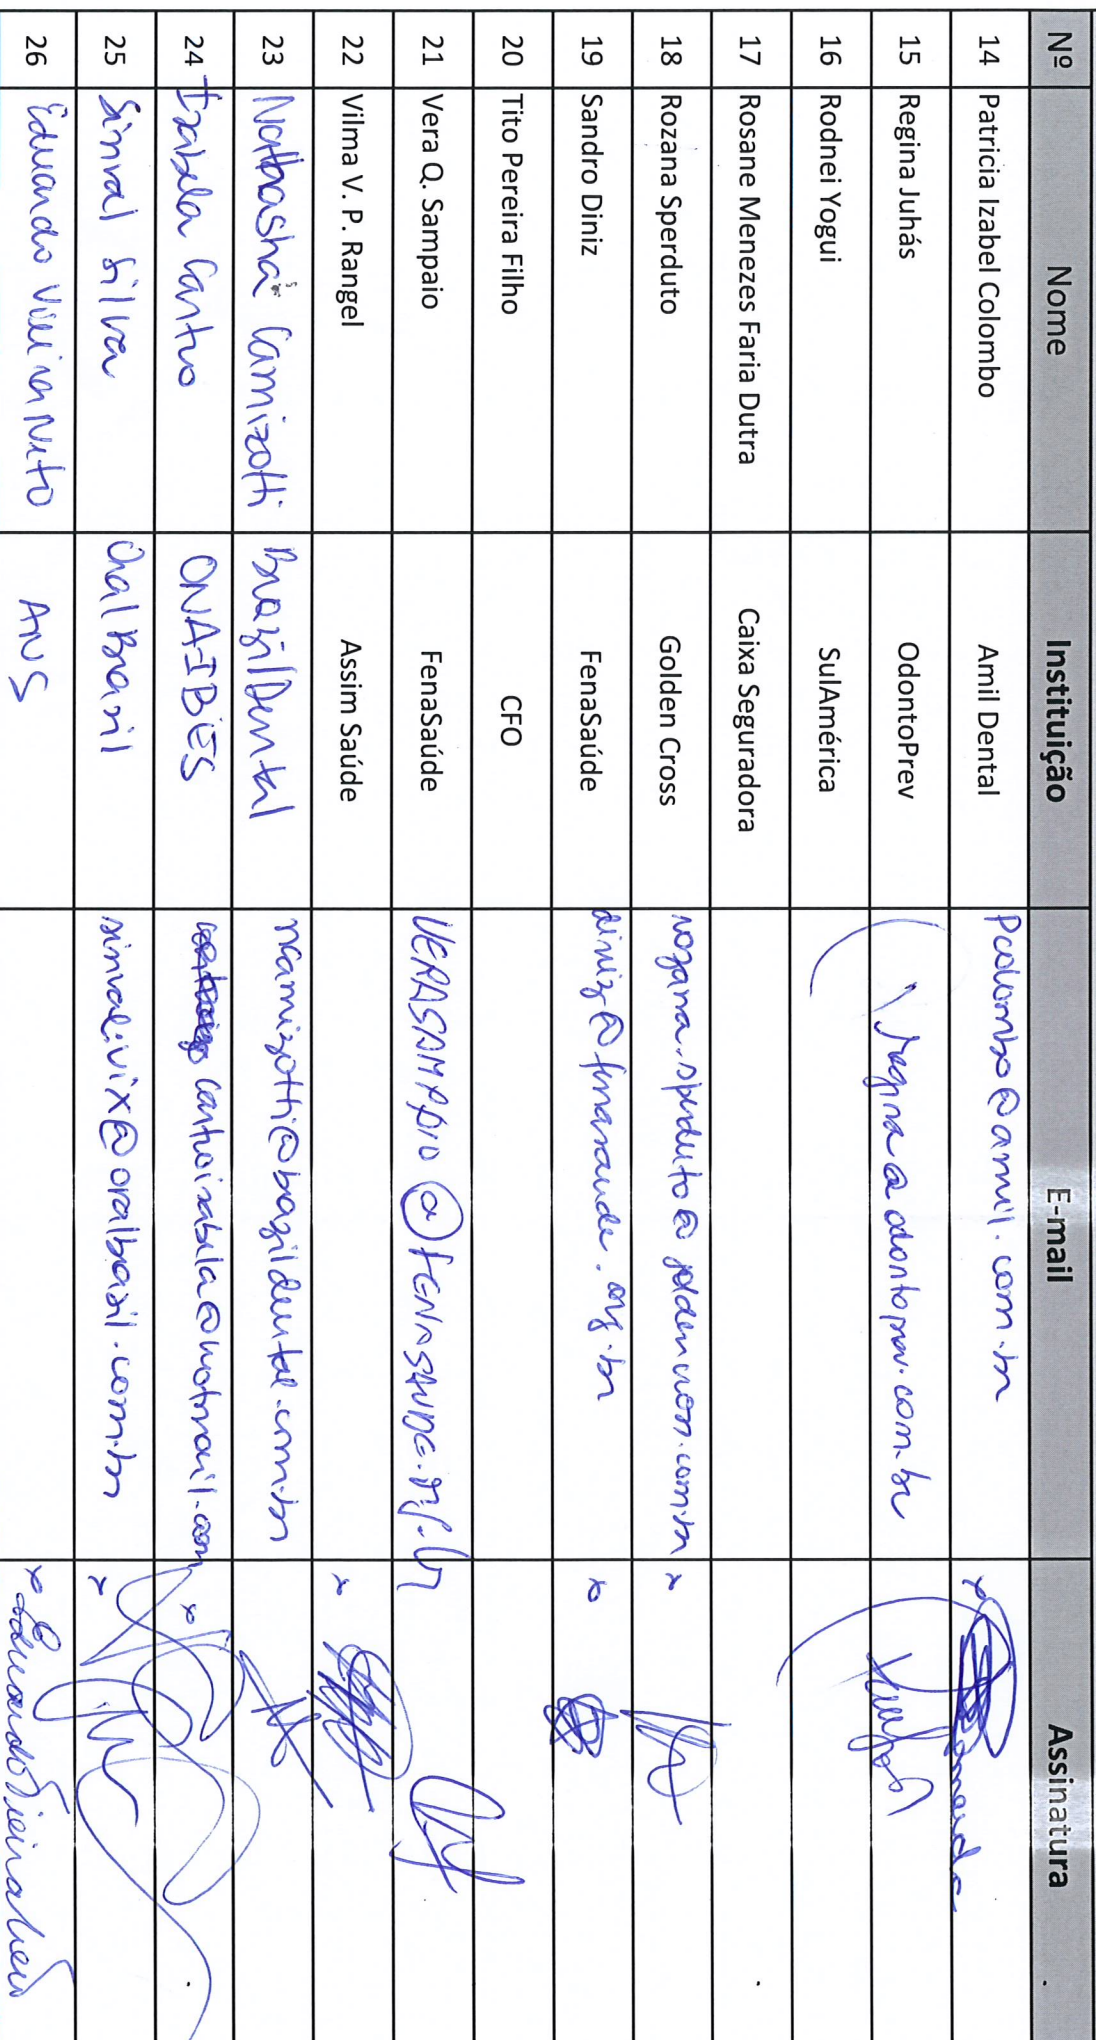 Nº Nome Instituição E-mail Assinatura
14 Patricia Izabel Colombo Amil Dental pcolombo@amil.com.br
15 Regina Juhás OdontoPrev regina@odontoprev.com.br
16 Rodnei Yogui SulAmérica
17 Rosane Menezes Faria Dutra Caixa Seguradora
18 Rozana Sperduto Golden Cross rozana.sperduto@goldencross.com.br
19 Sandro Diniz FenaSaúde diniz@fenasaude.org.br
20 Tito Pereira Filho CFO
21 Vera Q. Sampaio FenaSaúde VERASAMPAIO@FENASAUDE.org.br
22 Vilma V. P. Rangel Assim Saúde
23 Nathasha Camizotti BrazilDental ncamizotti@brazildental.com.br
24 Izabela Cantuo cantuoizabela@hotmail.com
25 Sinval Silva Oral Brasil sinval.vix@oralbrasil.com.br
26 Eduardo Vieira Neto ANS Eduardo Vieira Neto